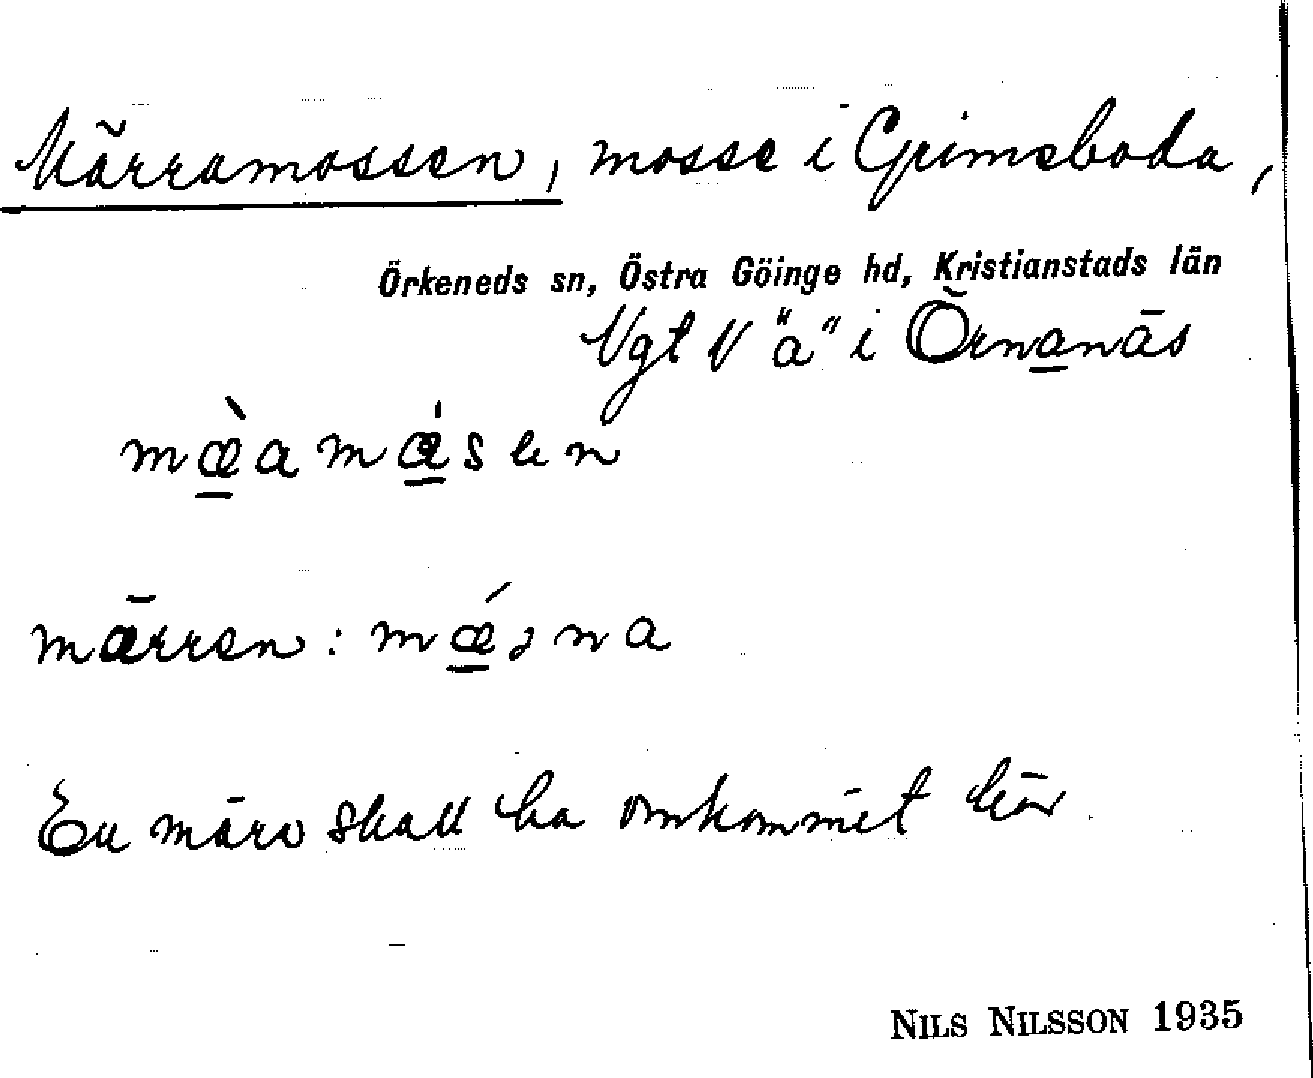 Märramossen, mosse i Grimsboda,
Örkeneds sn, Östra Göinge hd, Kristianstads län
Vgl V "a" i Örnanäs
mæ̀amǽsen
märren: mǽɹna
En märr skall ha omkommit här
NILS NILSSON 1935